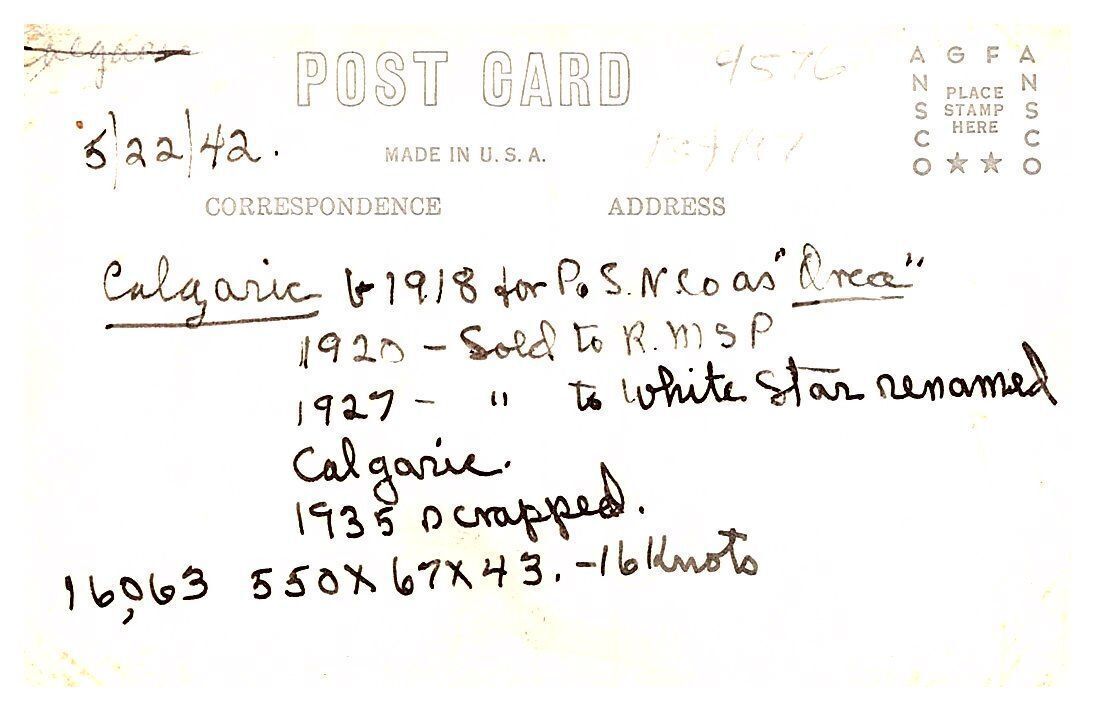 Calgaric
POST CARD
4576
AGFA
ANSCO
ANSCO
PLACE
STAMP
HERE
5/22/42.
MADE IN U.S.A.
CORRESPONDENCE
ADDRESS
Calgaric b 1918 for P. S. N. Co as "Orca"
1920 - Sold to R.M S P
1927 - " to White Star renamed
Calgaric.
1935 scrapped.
16,063 550X67X43. -16 Knots